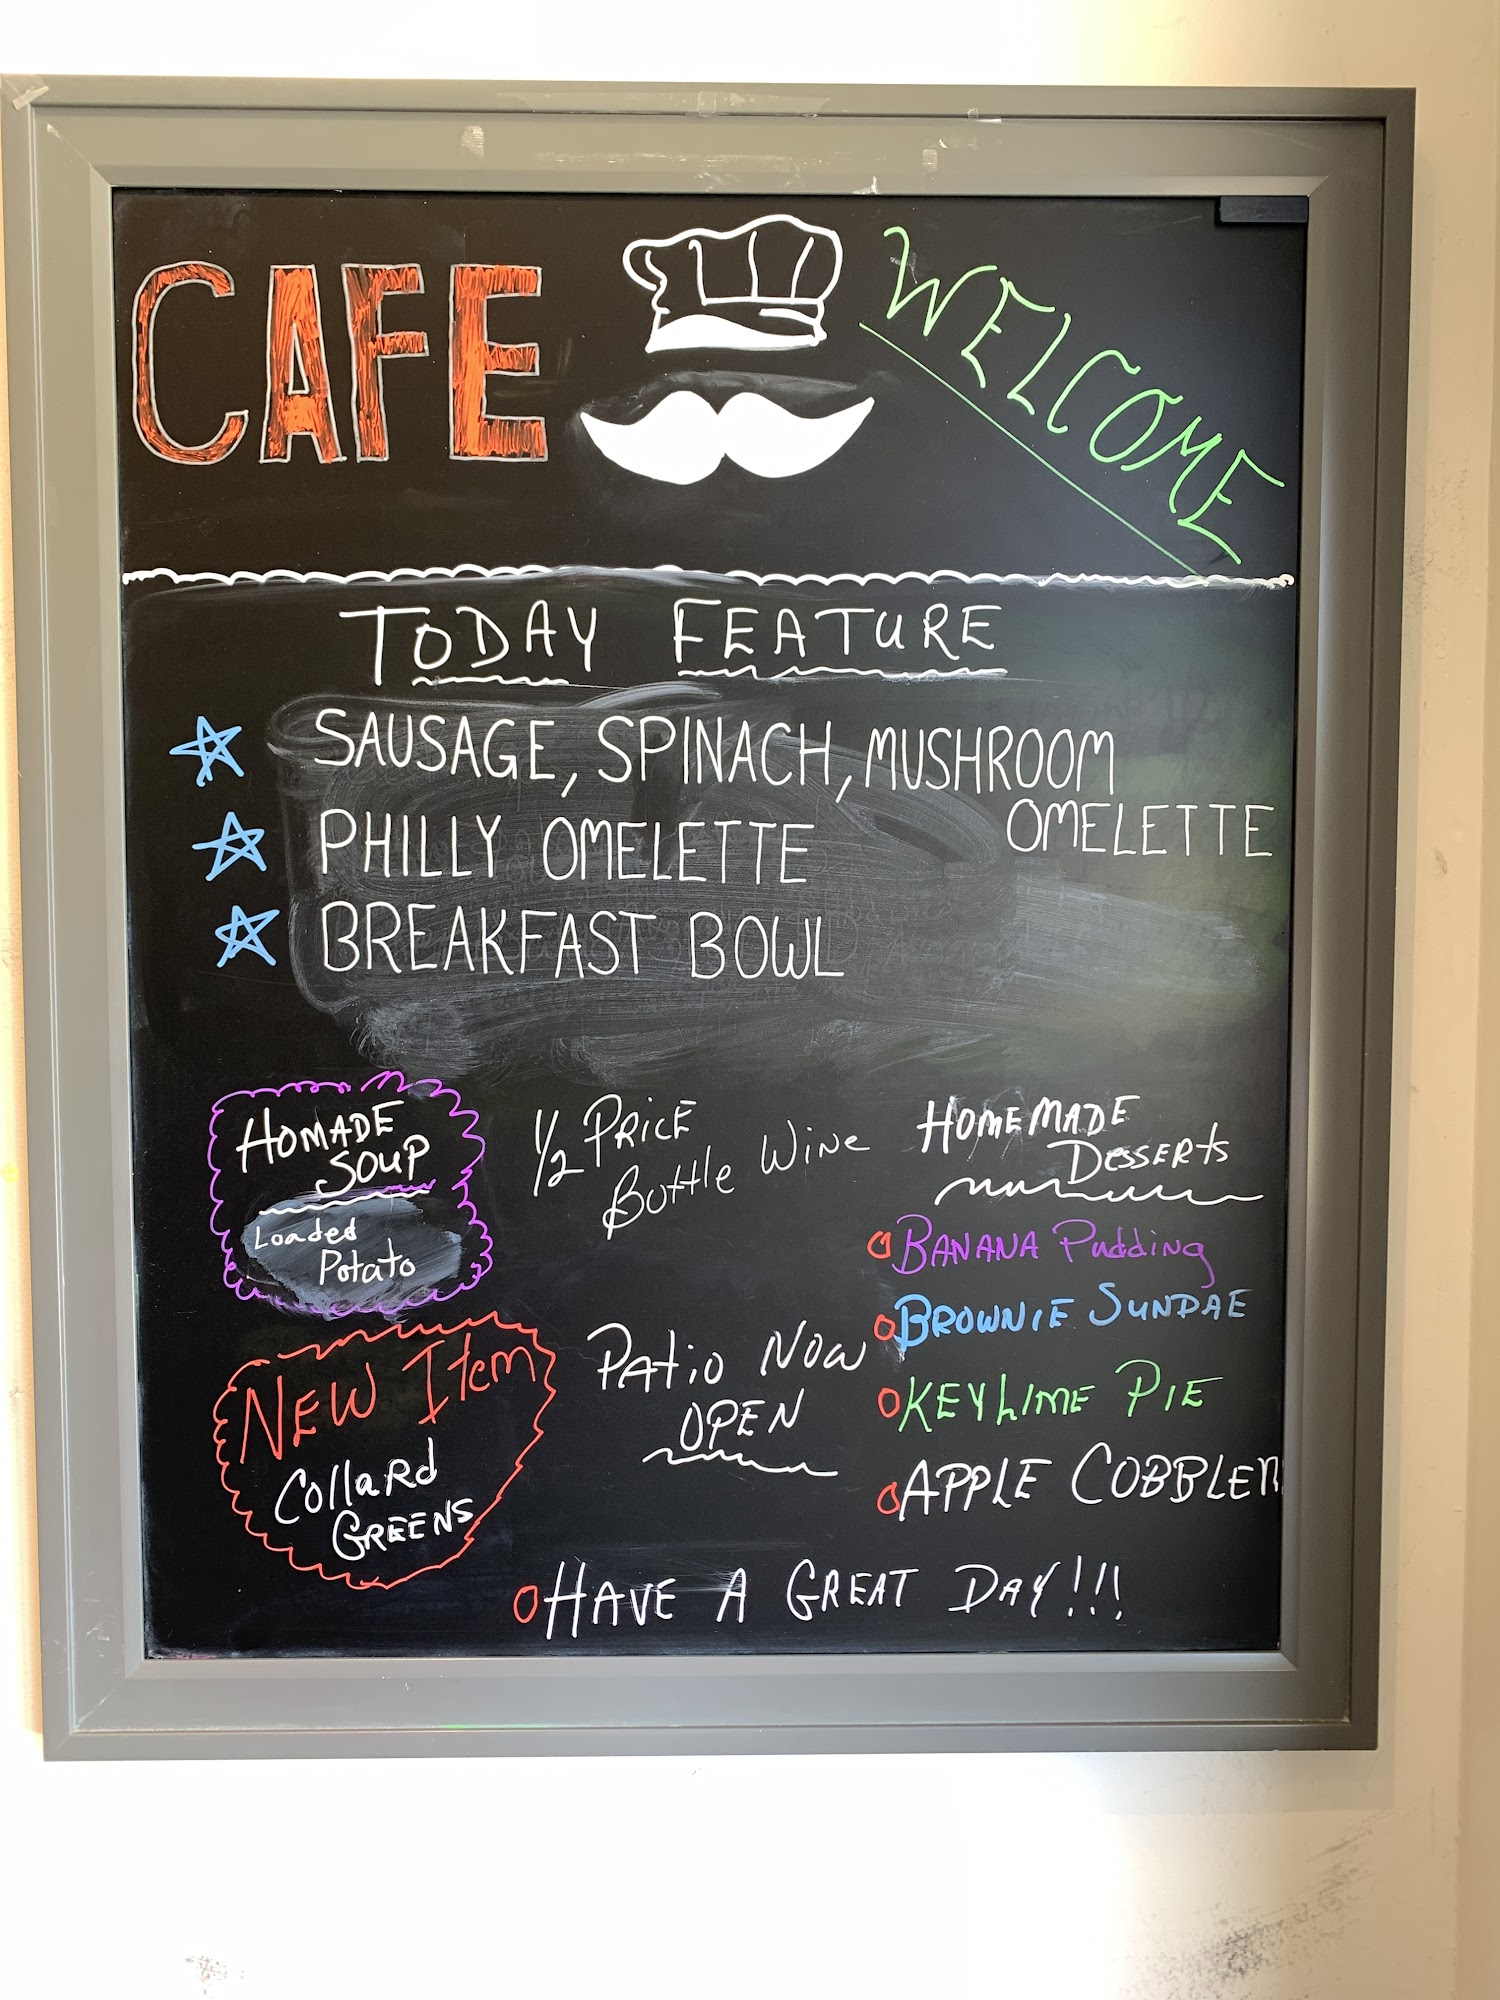 CAFE
WELCOME
TODAY FEATURE
SAUSAGE, SPINACH, MUSHROOM
OMELETTE
PHILLY OMELETTE
BREAKFAST BOWL
HOMADE
SOUP
Loaded
Potato
1/2 PRICE
Bottle WINE
HOMEMADE
DESSERTS
BANANA Pudding
BROWNIE SUNDAE
KEYLIME PIE
APPLE COBBLER
NEW Item
CollaRd
GREENS
PATiO NOW
OPEN
HAVE A GREAT DAY!!!